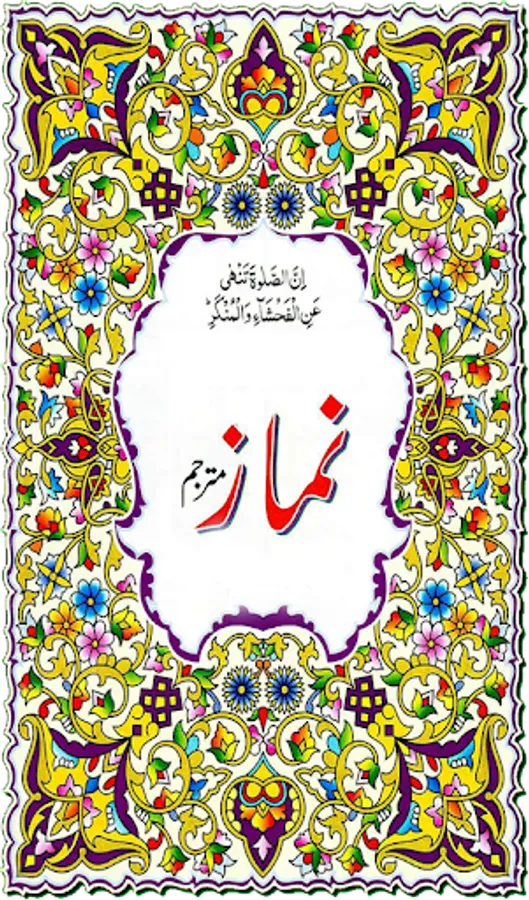 اِنَّ الصَّلٰوةَ تَنْهٰى
عَنِ الْفَحْشَآءِ وَالْمُنْكَرِؕ
نماز
مترجم